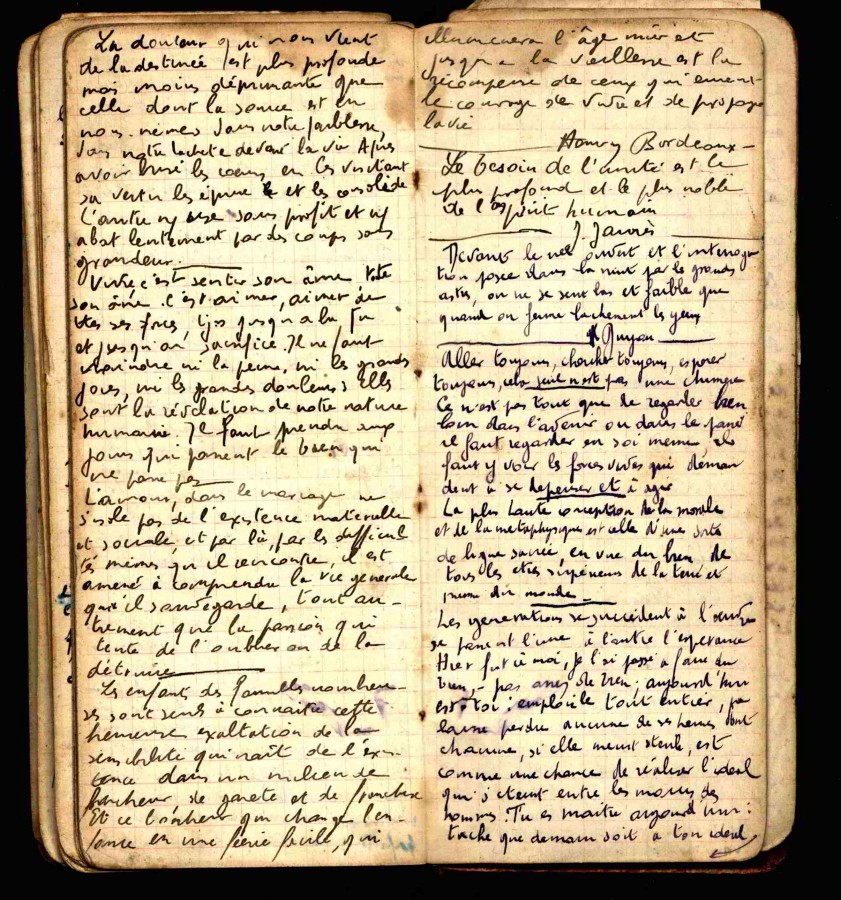 La douleur qui nous vient
de la destinée est plus profonde
mais moins déprimante que
celle dont la source est en
nous-mêmes dans notre faiblesse,
dans notre lacheté devant la vie Après
avoir brisé les cœurs, en les visitant
sa vertu les épure et les consolide
L'autre use sans profit et
abat lentement par des coups sans
grandeur.
Vivre c'est sentir son âme, tte
son âme. C'est aimer, aimer de
ttes ses forces, tjs jusqu'à la fin
et jusqu'au sacrifice. Il ne faut
craindre ni la peine, ni les grandes
joies, ni les grandes douleurs; Elles
sont la révélation de notre nature
humaine. Il faut prendre aux
jours qui passent le bien qui
ne passe pas
L'amour, dans le mariage ne
s'isole pas de l'existence materielle
et sociale, et par là, par les difficul
tés mêmes qu'il rencontre, il est
amené à comprendre la vie generale
qu'il sauvegarde, tout au-
trement que la passion qui
tente de l'oublier ou de la
détruire
Les enfants des familles nombreu-
ses sont seuls à connaitre cette
heureuse exaltation de la
sensibilité qui naît de l'exis-
tence dans un milieu de
fraicheur de gaieté et de franchise
Et ce bonheur qui change l'en-
fance en une féerie facile, qui
illuminera l'âge mûr et
jusqu'à la vieillesse est la
récompense de ceux qui eurent
le courage de vivre et de propager
la vie
Henry Bordeaux-
Le besoin de l'unité est le
plus profond et le plus noble
de l'esprit humain
J. Jaurès
Devant le ciel ouvert et l'interroga
tion posée dans la nuit par les grands
astres, on ne se sent las et faible que
quand on ferme lachement les yeux
Guyau
Aller toujours, chercher toujours, esperer
toujours, cela seul n'est pas une chimère
Ce n'est pas tout que de regarder bien
loin dans l'avenir ou dans le passé
il faut regarder en soi même, il
faut y voir les forces vives qui deman
dent à se depenser et à agir
La plus haute conception de la morale
et de la metaphysique est celle d'une sorte
de ligue sacrée, en vue du bien, de
tous les etres supérieurs de la terre et
même du monde
Les generations se succèdent à l'œuvre
se passent l'une à l'autre l'esperance
Hier fut à moi, je l'ai passé à faire du
bien, - pas assez de bien; aujourd'hui
est à toi: emploie le tout entier, ne
laisse perdre aucune de ses heures dont
chacune, si elle meurt sterile, est
comme une chance de réaliser l'idéal
qui s'éteint entre les mains des
hommes. Tu es maitre aujourd'hui:
tache que demain soit à ton idéal